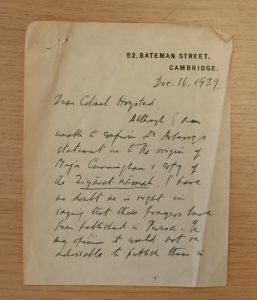 52, BATEMAN STREET,
CAMBRIDGE.
Dec. 16. 1939.
Dear Colonel
Although I am
unable to confirm Dr Arberry's
statement as to the origin of
Major Cunningham's copy of
the Ziyárat námah, I have
no doubt he is right in
saying that these prayers have
been published in Persia. In
my opinion it would not be
advisable to publish them in